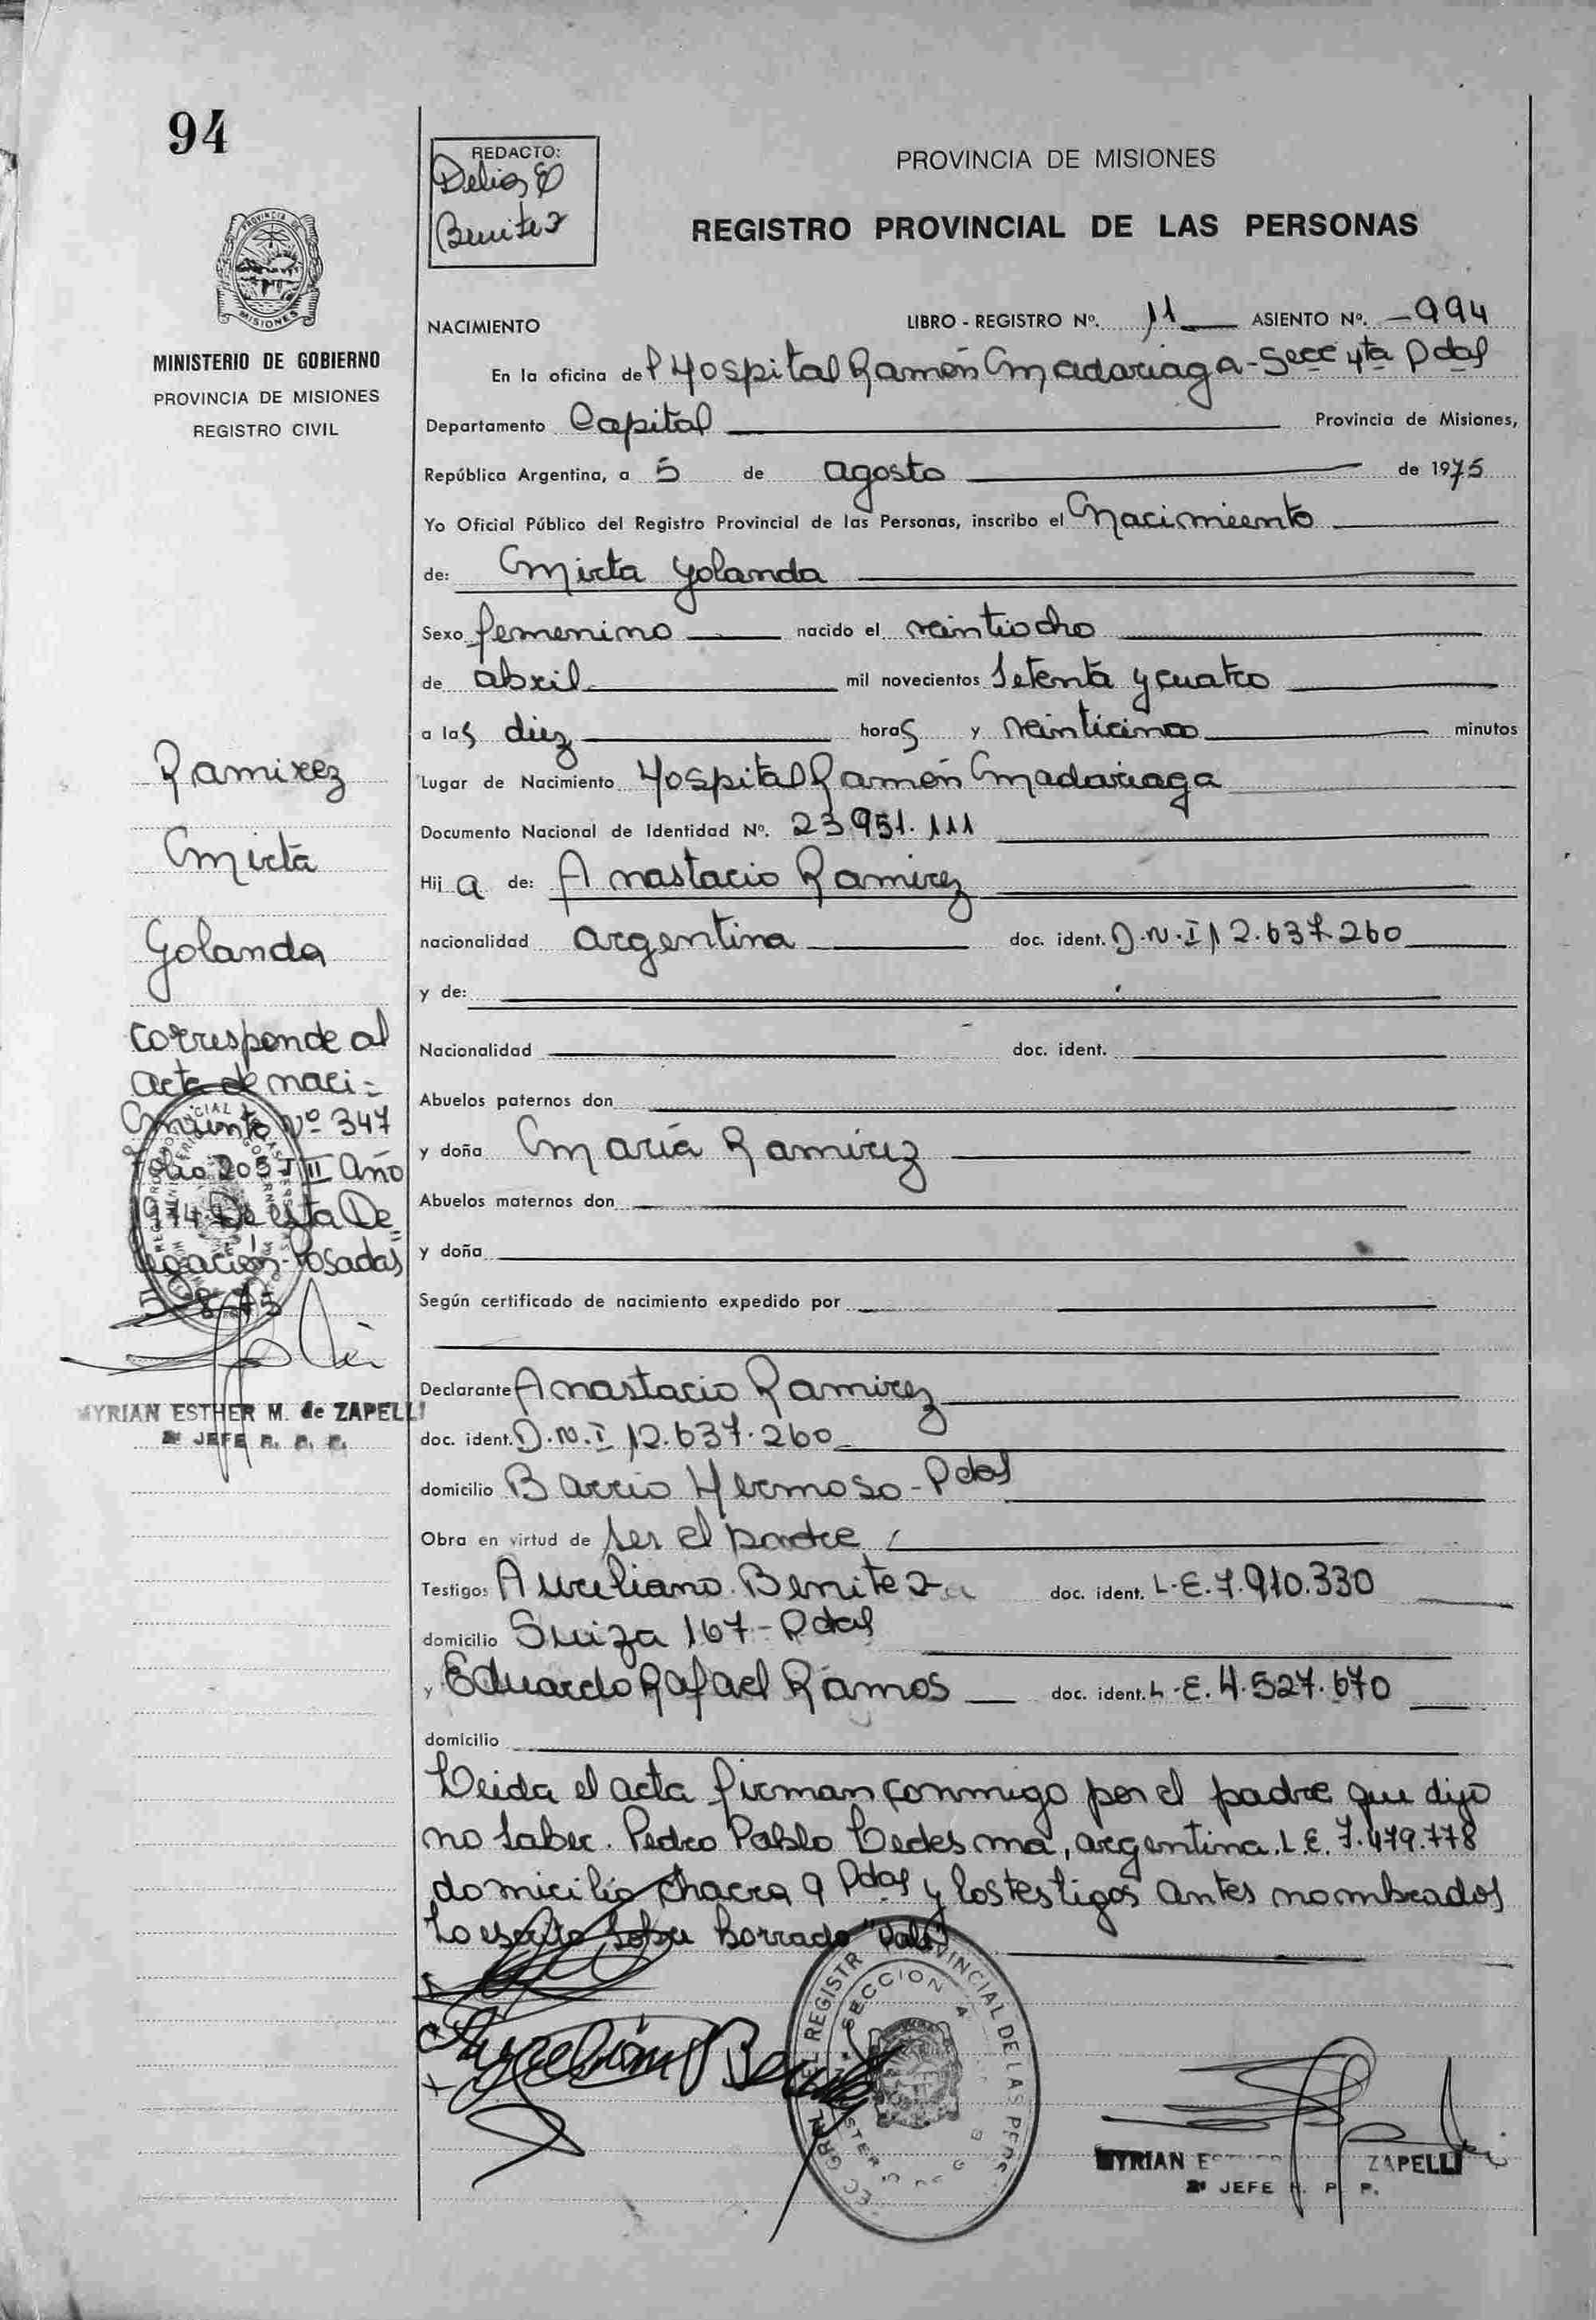 94
REDACTO:
Delia
Benitez
PROVINCIA DE MISIONES
REGISTRO PROVINCIAL DE LAS PERSONAS
PROVINCIA DE
MISIONES
MINISTERIO DE GOBIERNO
PROVINCIA DE MISIONES
REGISTRO CIVIL
NACIMIENTO LIBRO - REGISTRO Nº. 11 ASIENTO Nº. 994
En la oficina del Hospital Ramón Madariaga - Secc 4ta Pdas
Departamento Capital Provincia de Misiones,
República Argentina, a 5 de agosto de 1975
Yo Oficial Público del Registro Provincial de las Personas, inscribo el Nacimiento
de: Mirta Yolanda
Sexo femenino nacido el veintiocho
de abril mil novecientos Setenta y cuatro
a las diez horas y veinticinco minutos
Lugar de Nacimiento Hospital Ramón Madariaga
Documento Nacional de Identidad Nº. 23.951.111
Hija de: Anastacio Ramirez
nacionalidad argentina doc. ident. D.N.I 12.637.260
y de:
Nacionalidad doc. ident.
Abuelos paternos don
y doña María Ramirez
Abuelos maternos don
y doña
Según certificado de nacimiento expedido por
Declarante Anastacio Ramirez
doc. ident. D.N.I 12.637.260
domicilio Barrio Hermoso - Pdas
Obra en virtud de ser el padre
Testigos Aureliano Benitez doc. ident. L.E. 7.910.330
domicilio Suiza 167 - Pdas
y Eduardo Rafael Ramos doc. ident. L.E. 4.527.670
domicilio
Leida el acta firman conmigo por el padre que dijo
no saber. Pedro Pablo Ledesma, argentina. L.E. 7.479.778
domicilio chacra 9 Pdas y los testigos antes nombrados
Lo escrito sobre Borrado
Ramirez
Mirta
Yolanda
Corresponde al
acta de naci=
miento Nº 347
Folio 205 T II Año
1974 De esta De
legación Posadas
5-8-75
MYRIAN ESTHER M. de ZAPELLI
2º JEFE R. P. P.
REGISTR PROVINCIAL DE LAS PERS
SECCION 4
MYRIAN ZAPELLI
2º JEFE R. P. P.